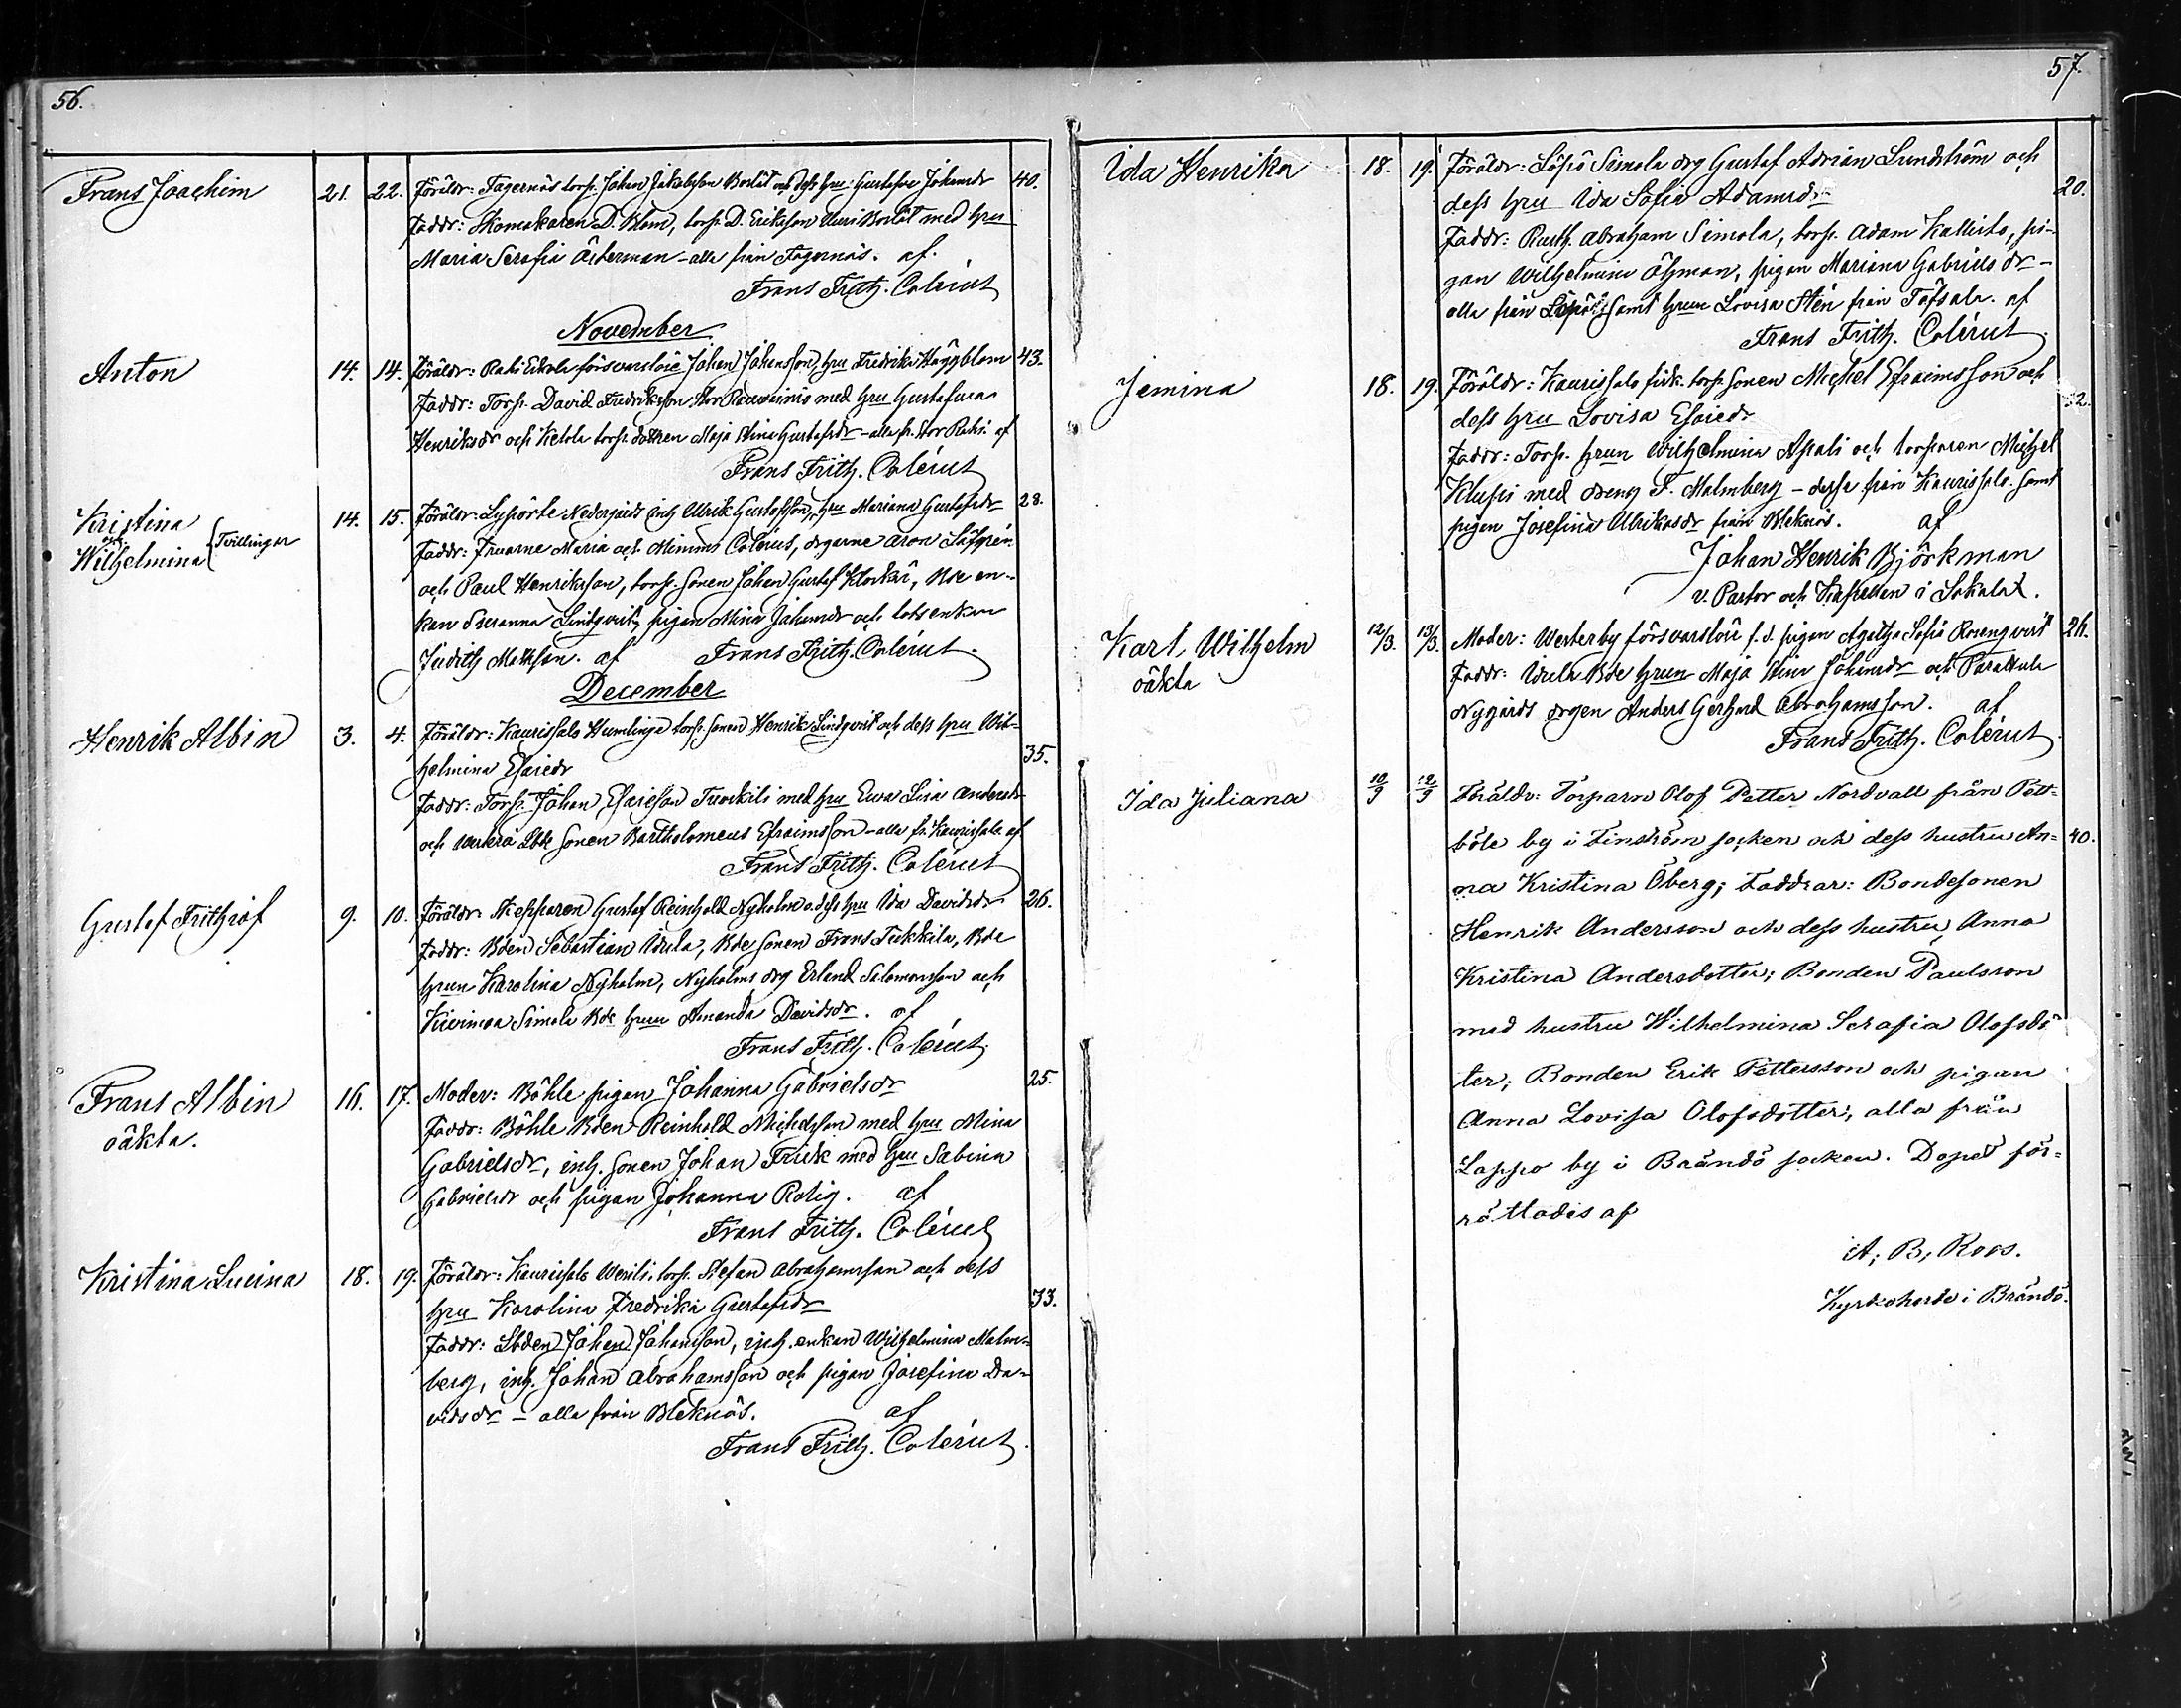 56.
Frans Joachim 21. 22. Föräldr: Fagernäs torp. Johan Jakobsson och dess hru Gustafva Johansdr 40.
Faddr: Skomakaren D. Blom, torp. D. Eriksson med hru
Maria Serafia Österman - alla från Fagernäs. af
Frans Frith. Colérus
November
Anton 14. 14. Föräldr: försvarslöse Johan Johansson, hru Fredrika Häggblom 43.
Faddr: Torp. David Fredriksson med hru Gustafva
Henriksdr och Ketola torp. dottren Maja Stina Gustafsdr - alla fr. Stor Rahi. af
Frans Frith. Colérus
Kristina och 14. 15. Föräldr: Lypörte Nedergårds inh. Ulrik Gustafsson, hru Mariana Gustafsdr 28.
Wilhelmina Tvillingar Faddr: Fruarne Maria och Mimmi Colerus, drgarne Aron Löfgrén
och Paul Henriksson, torp. sonen Johan Gustaf Klockar, Bde en-
kan Susanna Lindqvist, pigan Mina Johansdr och lotsenkan
Judith Matsson. af Frans Frith. Colérus
December
Henrik Albin 3. 4. Föräldr: Kaurissalo Humlinga torp. sonen Henrik Lindqvist och dess hru Wil-
helmina Esaiedr 35.
Faddr: Torp. Johan Esaiesson med hru Eva Lisa Andersdr
och Lbde sonen Bartholomeus Efraimsson - alla fr. Kaurissalo. af
Frans Frith. Colérus
Gustaf Frithiof 9. 10. Föräldr: Skepparen Gustaf Reinhold Nyholm o. dess hru Ida Davidsdr 26.
Faddr: Bden Sebastian Udula, Bde sonen Frans Tukkila, Bde
hrun Karolina Nyholm, Nyholms drg Erland Salomonsson och
Kivimaa Simola Bde hrun Amanda Davidsdr. af
Frans Frith. Colérus
Frans Albin 16. 17. Moder: Böhle pigan Johanna Gabrielsdr 25.
oäkta. Faddr: Böhle Bden Reinhold Michelsson med hru Mina
Gabrielsdr, inh. sonen Johan Frisk med hru Sabina
Gabrielsdr och pigan Johanna Rolig. af
Frans Frith. Colérus
Kristina Lucina 18. 19. Föräldr: Kaurissalo torp. Stefan Abrahamsson och dess
hru Karolina Fredrika Gustafsdr 33.
Faddr: Lbden Johan Johansson, inh. enkan Wilhelmina Malm-
berg, inh. Johan Abrahamsson och pigan Josefina Da-
vidsdr - alla från Bleknäs. af
Frans Frith. Colérus
57.
Ida Henrika 18. 19. Föräldr: Löpö Simola drg Gustaf Adrian Lundström och
dess hru Ida Sofia Adamsdr 20.
Faddr: Rusth. Abraham Simola, torp. Adam Kallisto, pi-
gan Wilhelmina Öhman, pigan Mariana Gabrielsdr -
alla från Löpö, samt hrun Lovisa Stén från Töfsala. af
Frans Frith. Colérus
Jemina 18. 19. Föräldr: Kaurissalo torp. sonen Michel Efraimsson och
dess hru Lovisa Esaiedr 32.
Faddr: Torp. hrun Wilhelmina Apali och torparen Michel
Klupis med dreng F. Malmberg - dessa från Kaurissalo. samt
pigan Josefina Ulriksdr från Bleknäs. af
Johan Henrik Björkman
v. Pastor och Kapellan i Lokalax.
Karl Wilhelm 12/3. 13/3. Moder: Westerby försvarslösa f.d. pigan Agatha Sofia Rosenqvist 24.
oäkta Faddr: Udula Bde hrun Maja Stina Johansdr och Parattula
Nygårds drgen Anders Gerhard Abrahamsson. af
Frans Frith. Colérus
Ida Juliana 10/9 12/9 Föräldr: Torparn Olof Petter Nordvall från Pett-
böle by i Finström socken och dess hustru An- 40.
na Kristina Öberg; Faddrar: Bondesonen
Henrik Andersson och dess hustru Anna
Kristina Andersdotter; Bonden Paulsson
med hustru Wilhelmina Serafia Olofsdo
ter; Bonden Erik Pettersson och pigan
Anna Lovisa Olofsdotter, alla från
Lappo by i Brändö socken. Dopet för-
rättades af
A, B, Roos.
Kyrkoherde i Brändö.